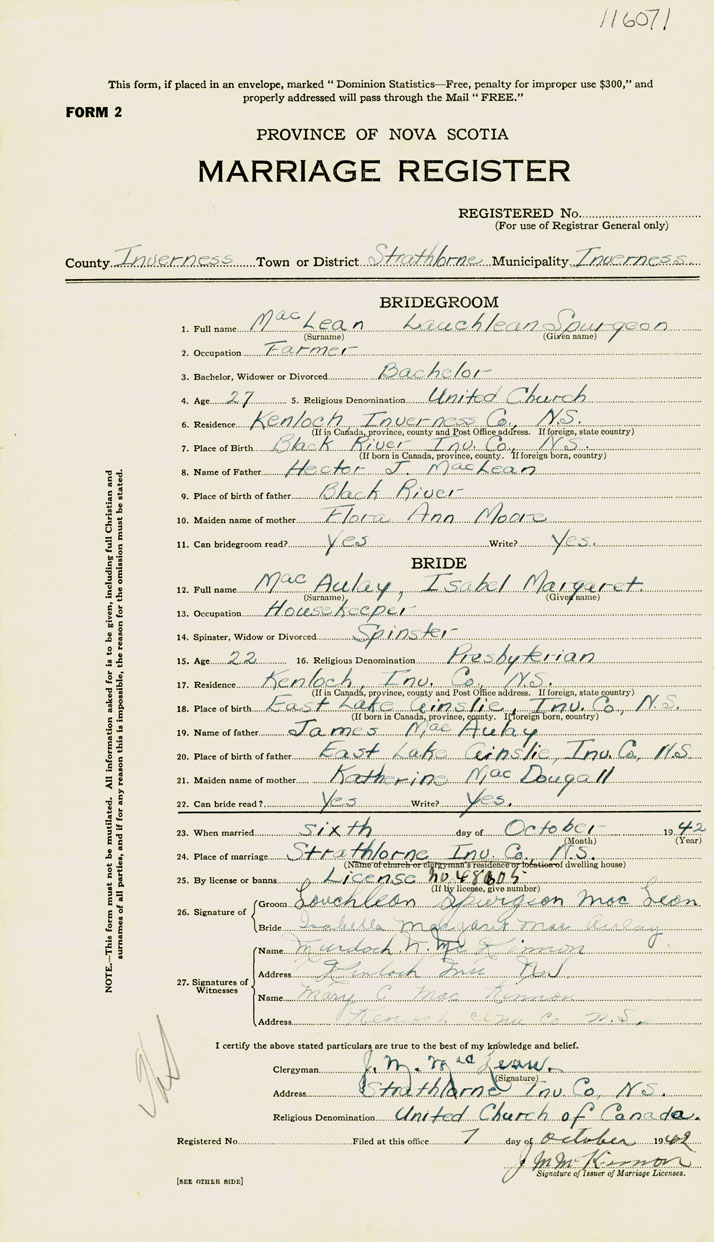 116071
This form, if placed in an envelope, marked " Dominion Statistics—Free, penalty for improper use $300," and
properly addressed will pass through the Mail " FREE."
FORM 2
PROVINCE OF NOVA SCOTIA
MARRIAGE REGISTER
REGISTERED No.
(For use of Registrar General only)
County Inverness Town or District Strathlorne Municipality Inverness
BRIDEGROOM
1. Full name MacLean Lauchlean Spurgeon
(Surname) (Given name)
2. Occupation Farmer
3. Bachelor, Widower or Divorced Bachelor
4. Age 27 5. Religious Denomination United Church
6. Residence Kenloch, Inverness Co., N.S.
(If in Canada, province, county and Post Office address. If foreign, state country)
7. Place of Birth Black River Inv. Co., N.S.
(If born in Canada, province, county. If foreign born, country)
8. Name of Father Hector J. MacLean
9. Place of birth of father Black River
10. Maiden name of mother Flora Ann Moore
11. Can bridegroom read? Yes Write? Yes.
BRIDE
12. Full name MacAulay, Isabel Margaret.
(Surname) (Given name)
13. Occupation Housekeeper
14. Spinster, Widow or Divorced Spinster
15. Age 22 16. Religious Denomination Presbyterian
17. Residence Kenloch, Inv. Co., N.S.
(If in Canada, province, county and Post Office address. If foreign, state country)
18. Place of birth East Lake Ainslie, Inv. Co., N.S.
(If born in Canada, province, county. If foreign born, country)
19. Name of father James MacAulay
20. Place of birth of father East Lake Ainslie, Inv. Co., N.S
21. Maiden name of mother Katherine MacDougall
22. Can bride read? Yes Write? Yes.
23. When married sixth day of October 1942
(Month) (Year)
24. Place of marriage Strathlorne Inv. Co., N.S.
(Name of church or clergyman's residence or location of dwelling house)
25. By license or banns License no.
(If by license, give number)
26. Signature of
Groom Lauchlean Spurgeon MacLean
Bride Isabella Margaret MacAulay
27. Signatures of Witnesses
Name Murdoch N. McKinnon
Address Kenloch Inv N.S
Name Mary C MacKinnon
Address Kenloch Inv Co N.S.
I certify the above stated particulars are true to the best of my knowledge and belief.
Clergyman J. M. MacLean.
(Signature)
Address Strathlorne Inv. Co., N.S.
Religious Denomination United Church of Canada.
Registered No. Filed at this office 7 day of October 1942
J M McKinnon
Signature of Issuer of Marriage Licenses.
[SEE OTHER SIDE]
NOTE.—This form must not be mutilated. All information asked for is to be given, including full Christian and
surnames of all parties, and if for any reason this is impossible, the reason for the omission must be stated.